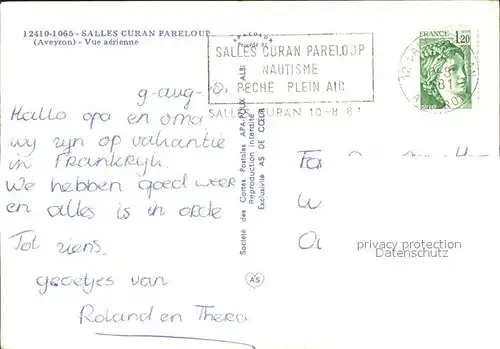 12410-1065 - SALLES CURAN PARELOUP
(Aveyron) - Vue aérienne
SALLES CURAN PARELOUP
NAUTISME
PECHE PLEIN AIR
SALLES CURAN 10-8-81
FRANCE
1,20
g-aug-8
Hallo opa en oma
wy zyn op vakantie
in Frankryk.
We hebben goed weer
en alles is in orde
Tot ziens.
groetjes van
Roland en Thera
Société des Cartes Postales APA-POUX - ALBI
Reproduction interdite
Exclusivité AS DE CŒUR
AS
privacy protection
Datenschutz